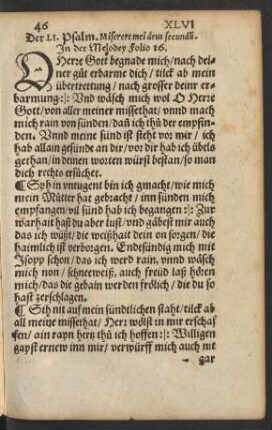 46 XLVI
Der LI. Psalm. Miserere mei deus secundũ.
In der Melodey Folio 16.
O Herre Gott begnade mich / nach dei-
ner güt erbarme dich / tilck ab mein
übertrettung / nach grosser deiner er-
barmung :|: Vnd wäsch mich wol O Herre
Gott / von aller meiner missethat / vnnd mach
mich rain von sünden / dañ ich thů der empfin-
den. Vnnd meine sünd ist stehts vor mir / ich
hab allain gesünde an dir / vor dir hab ich übels
gethan / in deinen worten würst bestan / so man
dich rechts ersůchet.
¶ Sih in vntugent bin ich gmacht / wie mich
mein Můtter hat gebracht / inn sünden mich
empfangen / vil sünd hab ich begangen :|: Zur
warhait hast du aber lust / vnd gäbest mir auch
das ich wüßt / die weißhait dein on sorgen / die
haimlich ist verborgen. Endtsündig mich mit
Isopp schon / das ich werd rain. vnnd wäsch
mich non / schneeweiß. auch freüd laß hören
mich / das die gebain werden frölich / die du so
hast zerschlagen.
¶ Sih nit auf mein sündtlichen staht / tilck ab
all meine missethat / Herr wölst in mir erschaf
fen / ain rayn hertz thů ich hoffen :|: Willigen
gayst ernew inn mir / verwürff mich auch nit
gar